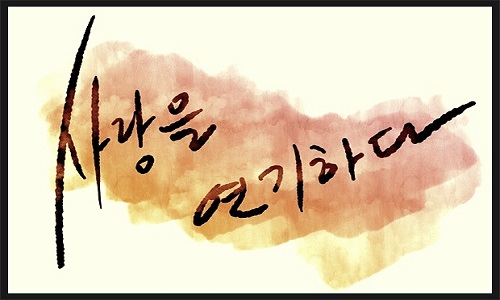 사랑을
연기하다